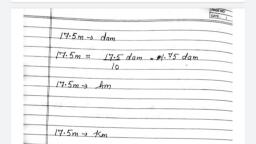 PAGE NO.
DATE
17.5m → dam
17.5m = 17.5 dam = 1.75 dam
10
17.5m → hm
17.5m → Km